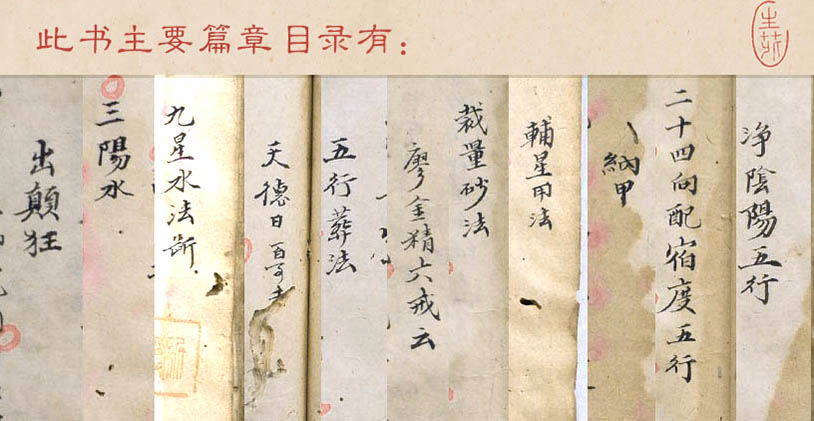 此书主要篇章目录有：
净陰陽五行
二十四向配宿度五行
納甲
輔星用法
裁量砂法
廖金精六戒云
五行葬法
天德日 百事吉
九星水法断
三陽水
出顛狂